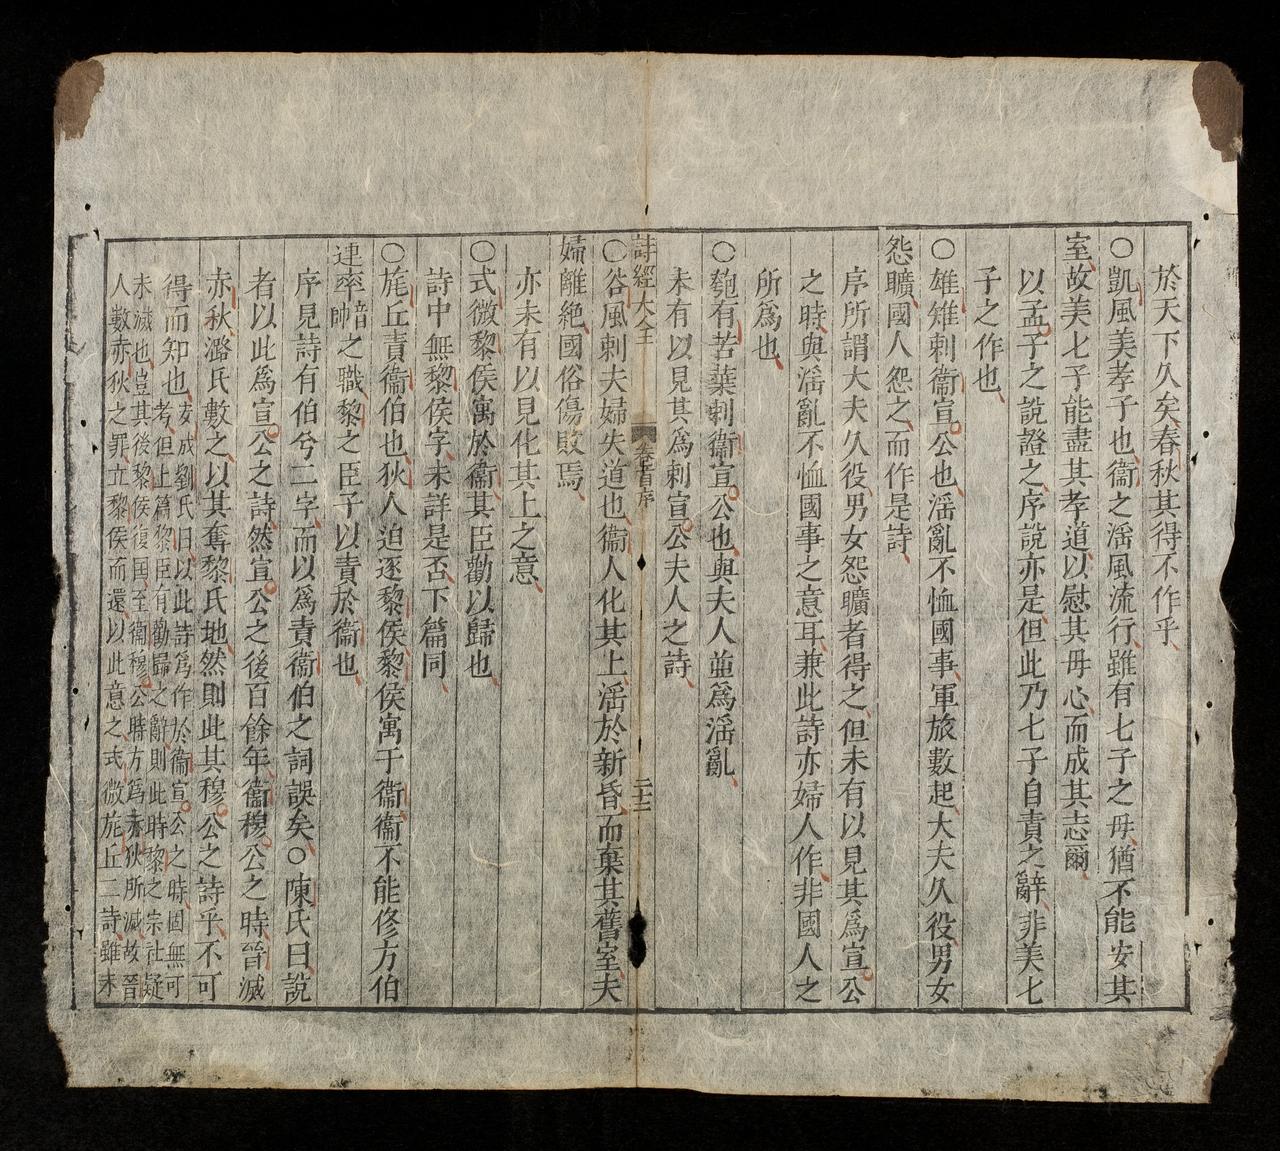 於天下久矣春秋其得不作乎
○凱風美孝子也衞之滛風流行雖有七子之母猶不能安其
室故美七子能盡其孝道以慰其母心而成其志爾
以孟子之說證之序說亦是但此乃七子自責之辭非美七
子之作也
○雄雉刺衞宣公也滛亂不恤國事軍旅數起大夫久役男女
怨曠國人怨之而作是詩
序所謂大夫久役男女怨曠者得之但未有以見其爲宣公
之時與滛亂不恤國事之意耳兼此詩亦婦人作非國人之
所爲也
○匏有苦葉刺衞宣公也公與夫人並爲滛亂
未有以見其爲刺宣公夫人之詩
詩經大全 卷首序 二十二
○谷風刺夫婦失道也衞人化其上滛於新昏而棄其舊室夫
婦離絶國俗傷敗焉
亦未有以見化其上之意
○式微黎侯寓於衞其臣勸以歸也
詩中無黎侯字未詳是否下篇同
○旄丘責衞伯也狄人迫逐黎侯黎侯寓于衞衞不能修方伯
連率音帥之職黎之臣子以責於衞也
序見詩有伯兮二字而以爲責衞伯之詞誤矣○陳氏曰說
者以此爲宣公之詩然宣公之後百餘年衞穆公之時晉滅
赤狄潞氏數之以其奪黎氏地然則此其穆公之詩乎不可
得而知也安成劉氏曰以此詩爲作於衞宣公之時固無可
考但上篇黎臣有勸歸之辭則此時黎之宗社疑
未滅也豈其後黎侯復国至衞穆公時方爲赤狄所滅故晉
人數赤狄之罪立黎侯而還以此意之式微旄丘二詩雖未